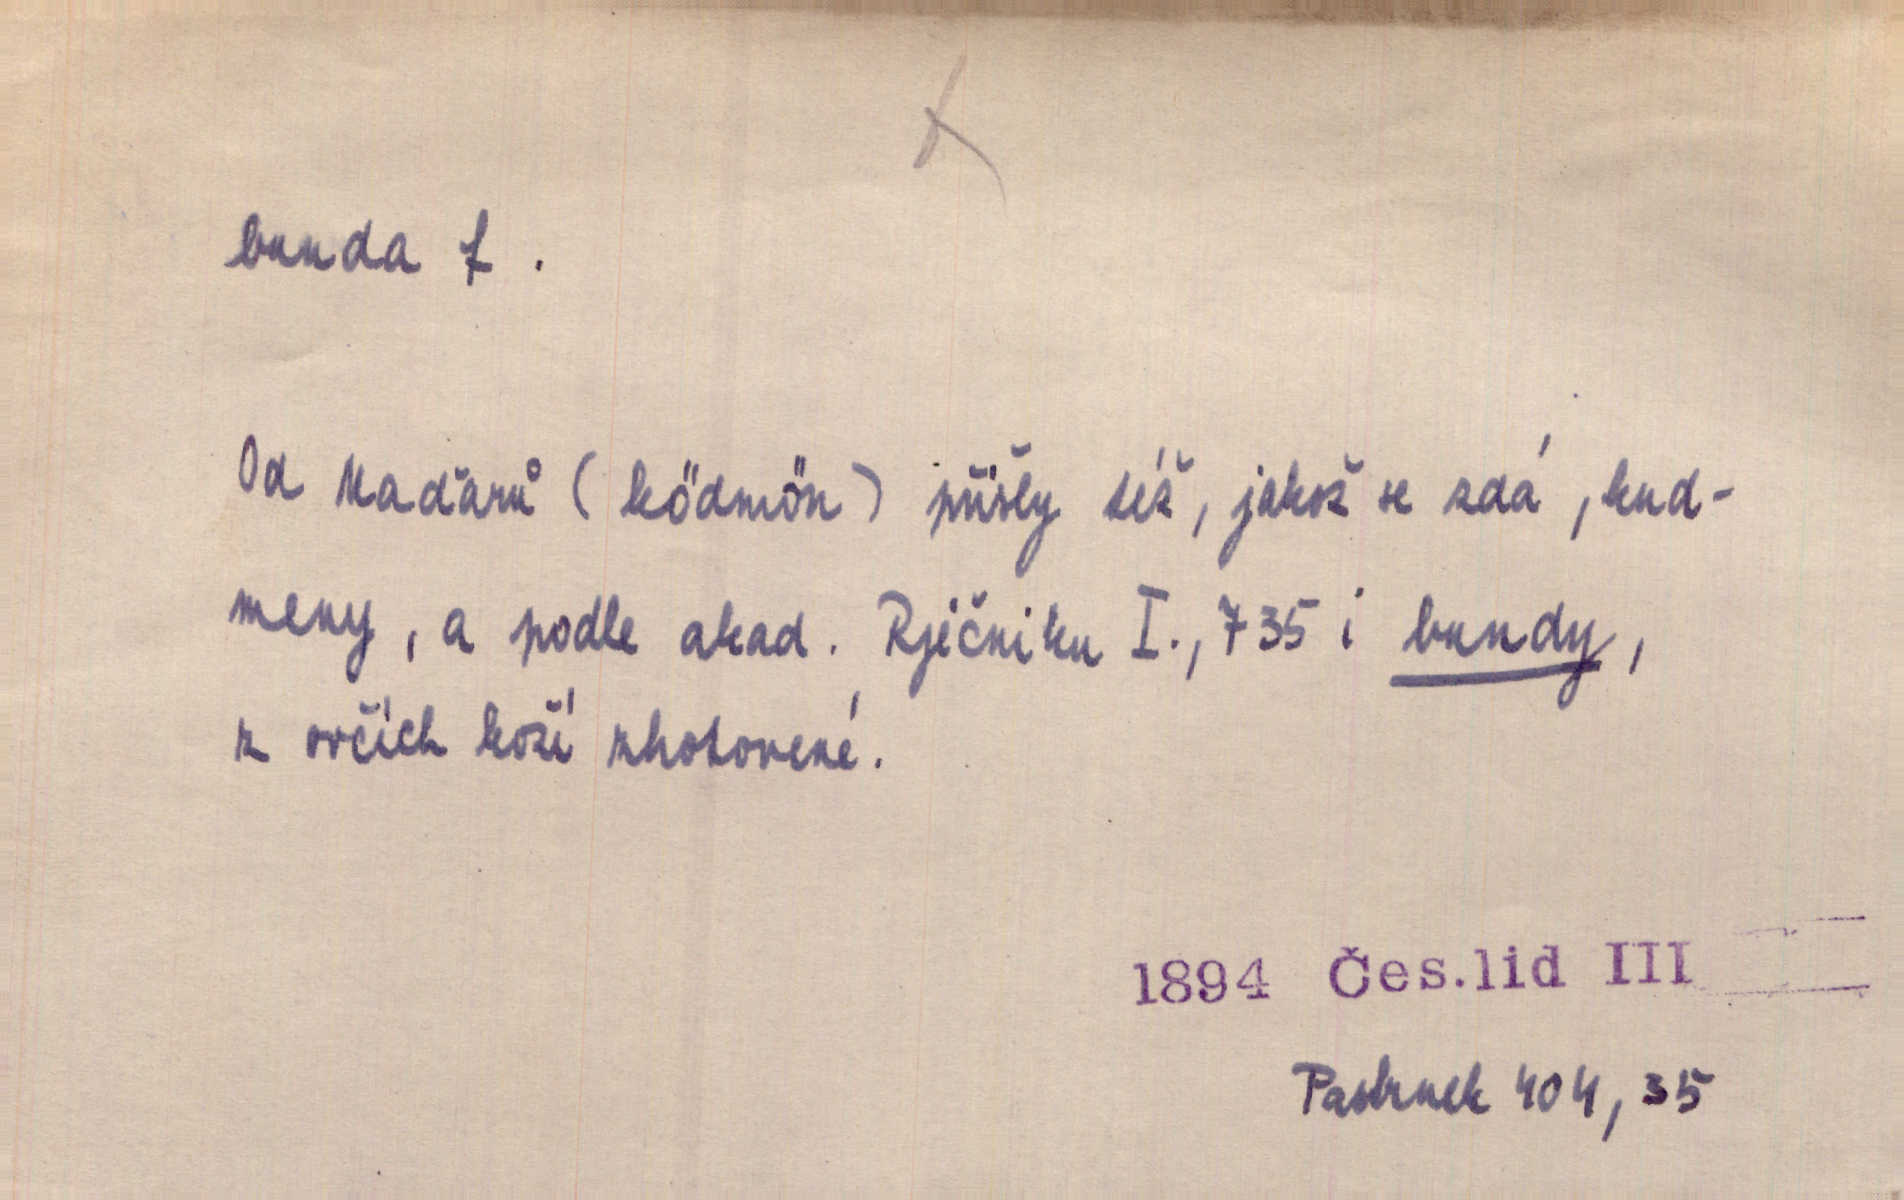 bunda f.
Od Maďarů (ködmön) přišly též, jakož se zdá, kud-
meny, a podle akad. Rječniku I., 735 i bundy,
z ovčích koží zhotovené.
1894 Čes.lid III
Pastrnek 404, 35